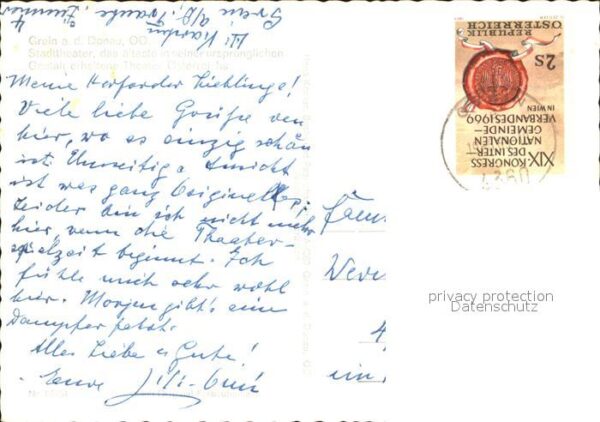 Grein a/D.
Grein a. d. Donau, OÖ
Stadttheater, das älteste in seiner ursprünglichen
Gestalt erhaltene Theater Österreichs
Meine Herforder Lieblinge!
Viele liebe Grüße von
hier, wo es einzig schön
ist. Umseitige Ansicht
ist was ganz Originelles;
leider bin ich nicht mehr
hier, wenn die Theater-
spielzeit beginnt. Ich
fühle mich sehr wohl
hier. Morgen gibt's eine
Dampferfahrt.
Alles Liebe u Gute!
Eure
REPUBLIK
ÖSTERREICH
2S
XIX. KONGRESS
DES INTER-
NATIONALEN
GEMEINDE-
VERBANDES 1969
IN WIEN
4360
Fam
privacy protection
Datenschutz